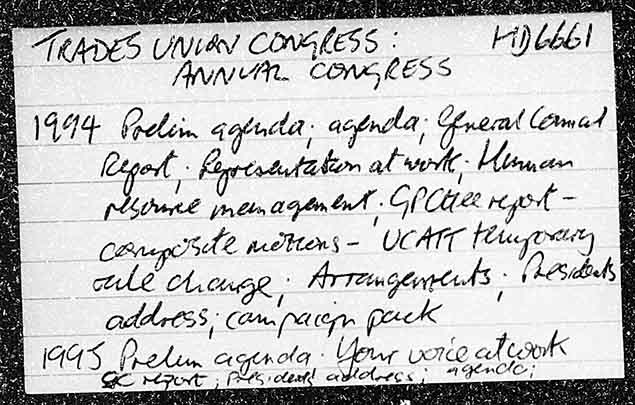 TRADES UNION CONGRESS: HD6661
ANNUAL CONGRESS
1994 Prelim agenda; agenda; General Council
Report; Representation at work; Human
resource management; GPCttee report -
composite motions - UCATT temporary
rule change; Arrangements; Presidents
address; campaign pack
1995 Prelim agenda. Your voice at work
GC report; Presidents' address; agenda;